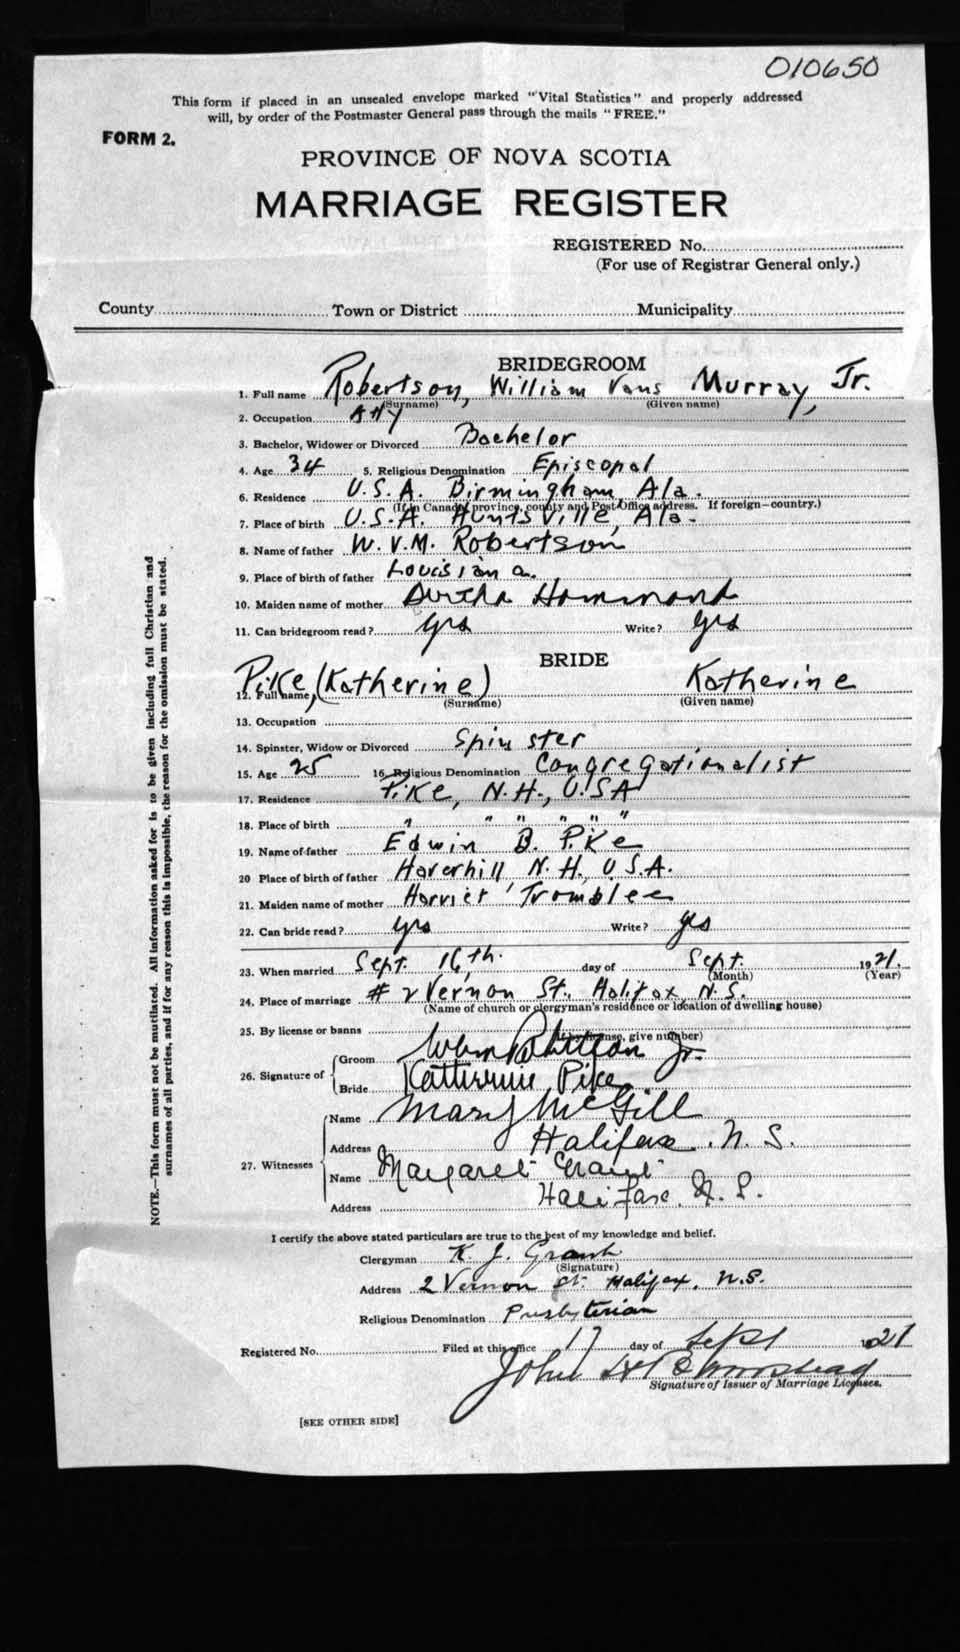 010650
This form if placed in an unsealed envelope marked "Vital Statistics" and properly addressed
will, by order of the Postmaster General pass through the mails "FREE."
FORM 2.
PROVINCE OF NOVA SCOTIA
MARRIAGE REGISTER
REGISTERED No.
(For use of Registrar General only.)
County Town or District Municipality
BRIDEGROOM
1. Full name Robertson, William Vans Murray, Jr.
(Surname) (Given name)
2. Occupation Atty
3. Bachelor, Widower or Divorced Bachelor
4. Age 34 5. Religious Denomination Episcopal
6. Residence U.S.A. Birmingham, Ala.
(If in Canada, province, county and Post Office address. If foreign—country.)
7. Place of birth U.S.A. Huntsville, Ala.
8. Name of father W.V.M. Robertson
9. Place of birth of father Louisiana.
10. Maiden name of mother Hammond
11. Can bridegroom read? yes Write? yes
BRIDE
12. Full name Pike, (Katherine) Katherine
(Surname) (Given name)
13. Occupation
14. Spinster, Widow or Divorced Spinster
15. Age 25 16. Religious Denomination Congregationalist
17. Residence Pike, N.H., U.S.A
18. Place of birth " " " " " "
19. Name of father Edwin B. Pike
20 Place of birth of father Haverhill N.H., U.S.A.
21. Maiden name of mother Harriet Tromblee
22. Can bride read? yes Write? yes
23. When married Sept. 16th. day of Sept. 1921.
(Month) (Year)
24. Place of marriage # 2 Vernon St., Halifax N.S.
(Name of church or clergyman's residence or location of dwelling house)
25. By license or banns
(If by license, give number)
26. Signature of Groom Robertson Jr.
Bride Katherine Pike
27. Witnesses Name Mary McGill
Address Halifax. N.S.
Name Margaret Grant
Address Halifax. N.S.
NOTE.—This form must not be mutilated. All information asked for is to be given including full Christian and
surnames of all parties, and if for any reason this is impossible, the reason for the omission must be stated.
I certify the above stated particulars are true to the best of my knowledge and belief.
Clergyman K. J. Grant
(Signature)
Address 2 Vernon St. Halifax, N.S.
Religious Denomination Presbyterian
Registered No. Filed at this office 17 day of Sept 1921
John
Signature of Issuer of Marriage Licenses.
[SEE OTHER SIDE]